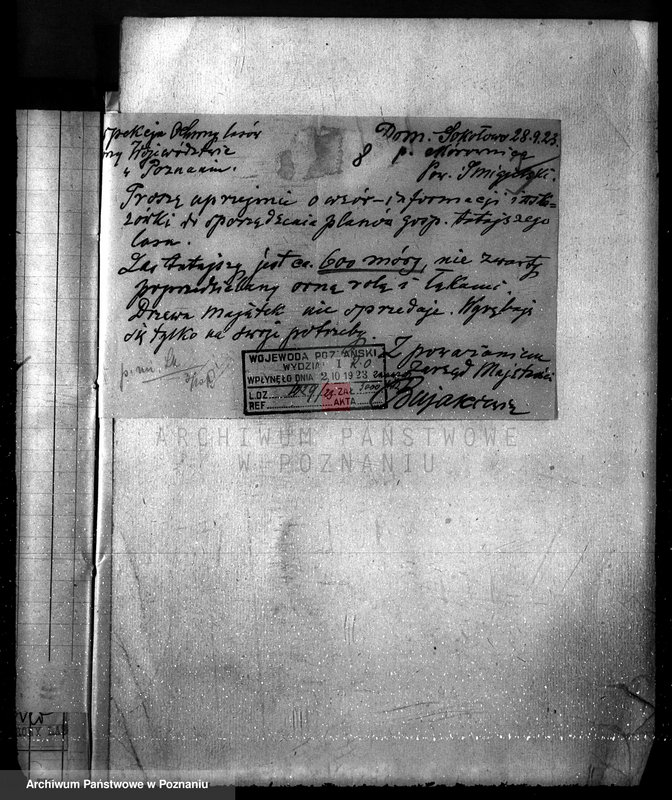 Dom. Sokołowo 28.9.23.
spekcja Ochrony lasów
przy Województwie
w Poznaniu.
8
p. Morownica
Pow. Śmigielski.
Proszę uprzejmie o wzór-informacji i wska-
zówki do sporządzenia planów gosp. tutejszego
lasu.
Las tutejszy jest ca. 600 mórg, nie zwarty
poprzedzielany orną rolą i łąkami.
Drzewa majątek nie sprzedaje. Wyrębuje
się tylko na swoje potrzeby.
Z poważaniem
Zarząd Majętności
WOJEWODA POZNAŃSKI
WYDZIAŁ I R O
WPŁYNĘŁO DNIA 2.10 1923
L.DZ. 1029/23 ZAŁ.
REF. AKTA
ARCHIWUM PAŃSTWOWE
W POZNANIU
Archiwum Państwowe w Poznaniu